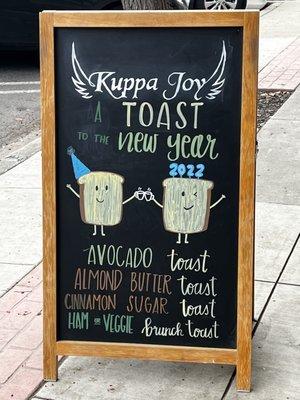 Kuppa Joy
A TOAST
TO THE new YEAR
2022
AVOCADO toast
ALMOND BUTTER toast
CINNAMON SUGAR toast
HAM OR VEGGIE brunch toast